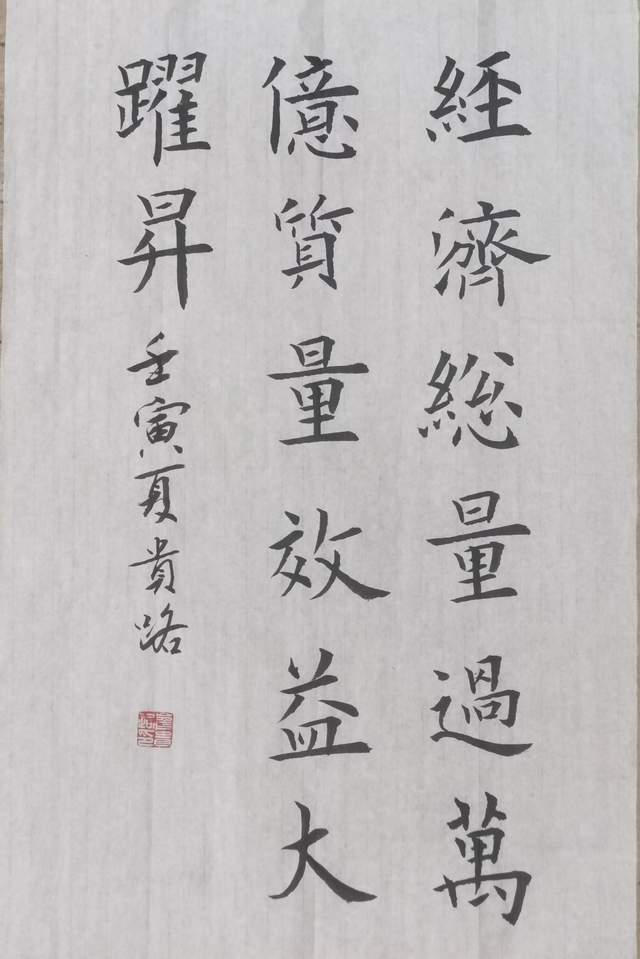 經濟総量過萬
億質量效益大
躍昇壬寅夏贵路